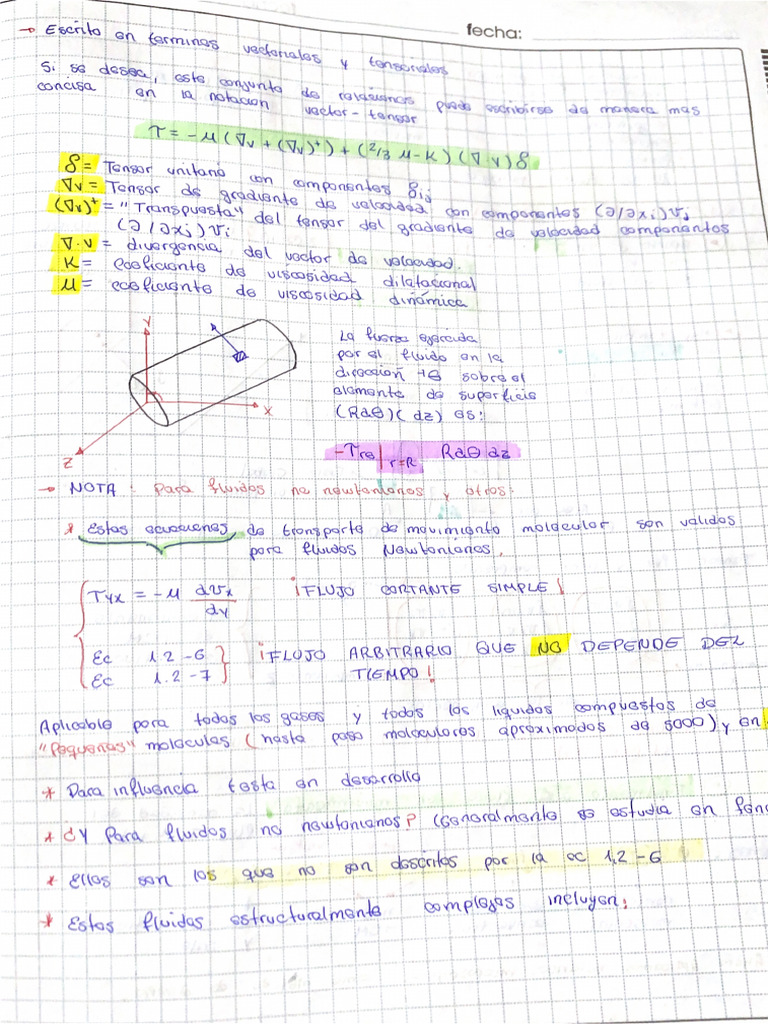 fecha:
→ Escrito en terminos vectoriales y tensoriales
Si se desea, este conjunto de relaciones puede escribirse de manera mas
concisa en la notacion vector-tensor
τ = -μ (∇v + (∇v)⁺) + (2/3 μ - K) (∇·v) δ
δ = Tensor unitario con componentes δij
∇v = Tensor de gradiente de velocidad con componentes (∂/∂xi) vj
(∇v)⁺ = "Transpuesta" del tensor del gradiente de velocidad componentes
(∂/∂xj) vi
∇·v = divergencia del vector de velocidad.
K = coeficiente de viscosidad dilatacional
μ = coeficiente de viscosidad dinámica
Y
X
Z
La fuerza ejercida
por el fluido en la
dirección +θ sobre el
elemento de superficie
(Rdθ)(dz) es:
-τrθ|r=R Rdθ dz
→ NOTA: Para fluidos no newtonianos y otros.
* Estas ecuaciones de transporte de movimiento molecular son validos
para fluidos Newtonianos.
τyx = -μ dvx/dy ¡FLUJO CORTANTE SIMPLE!
Ec 1.2-6
Ec 1.2-7
¡FLUJO ARBITRARIO QUE NO DEPENDE DEL
TIEMPO!
Aplicable para todos los gases y todos los liquidos compuestos de
"Pequeñas" moleculas (hasta peso moleculares aproximados de 5000), y en
* Para influencia testa en desarrollo
* ¿Y Para fluidos no newtonianos? (Generalmente se estudia en
* Ellos son los que no son descritos por la ec 1.2-6
* Estos fluidos estructuralmente complejos incluyen: